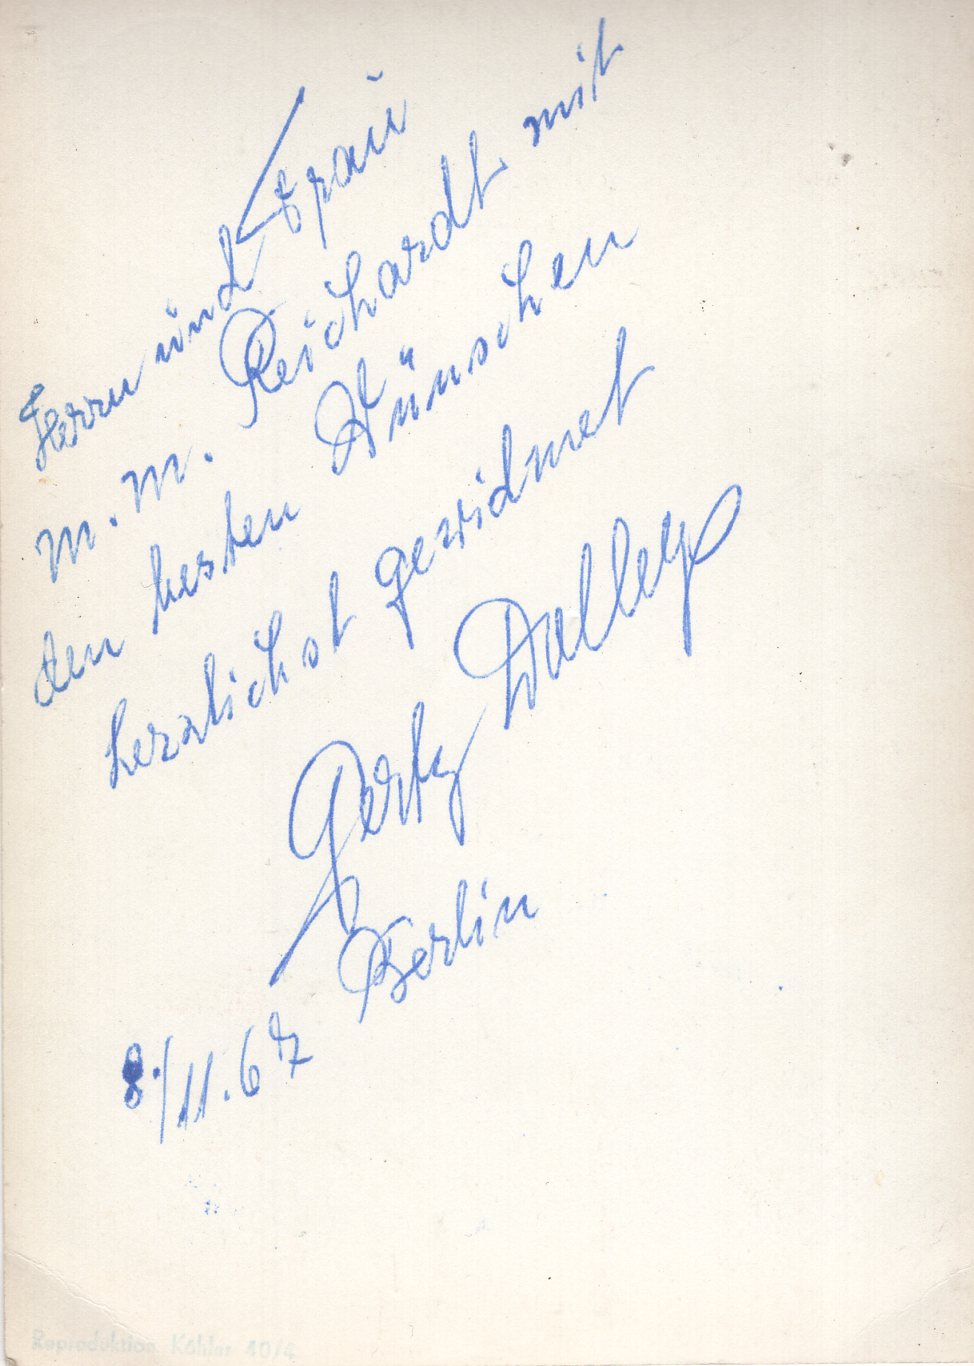 Herrn und Frau
M. M. Reichardt mit
den besten Wünschen
herzlichst gewidmet
Gerty Dalley
Berlin
8./11.67
Reproduktion Köhler 40/4